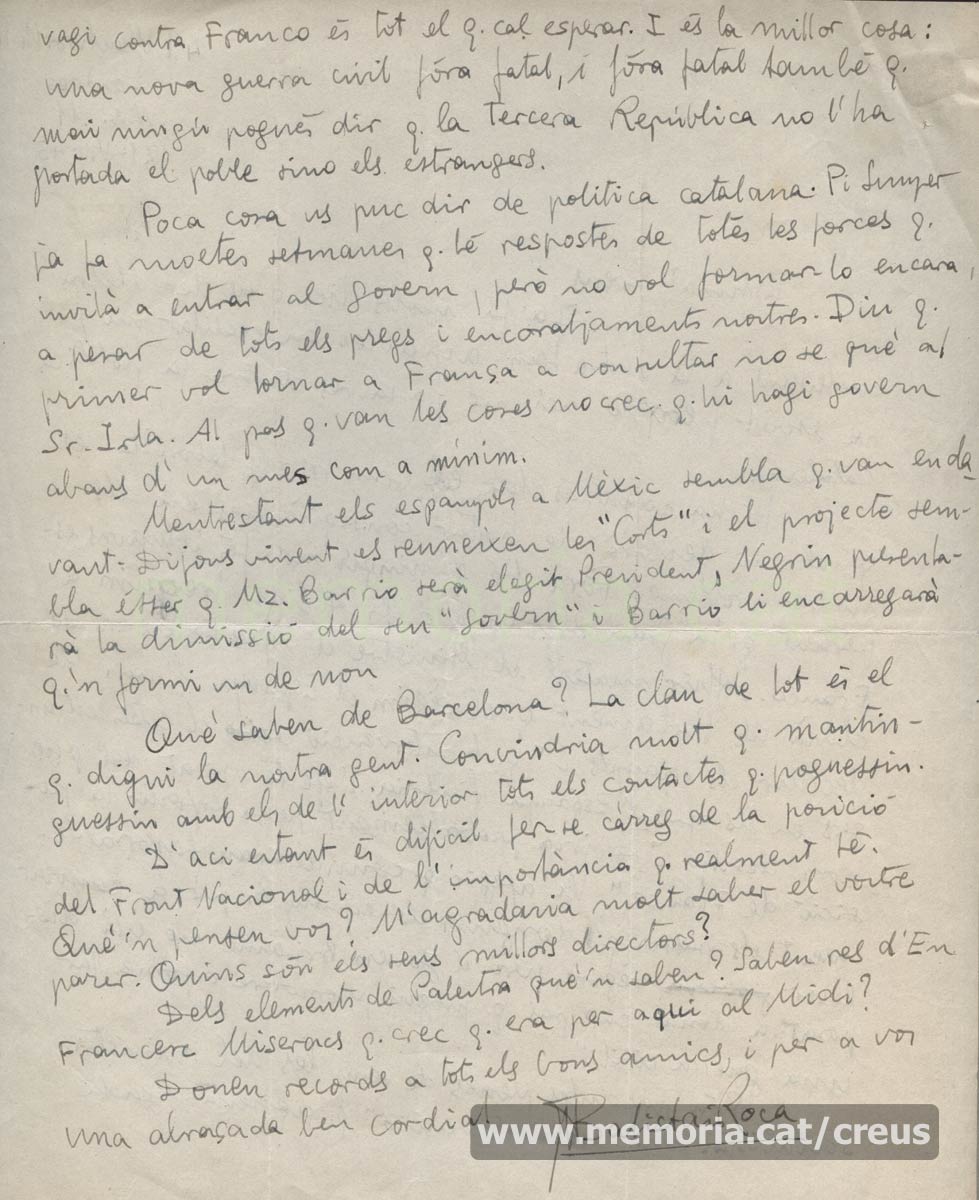 vagi contra Franco és tot el q. cal esperar. I és la millor cosa:
una nova guerra civil fóra fatal, i fóra fatal també q.
mai ningú pogués dir q. la Tercera República no l'ha
portada el poble sino els estrangers.
Poca cosa us puc dir de politica catalana. Pi Sunyer
ja fa moltes setmanes q. té respostes de totes les forces q.
invità a entrar al govern, però no vol formar-lo encara,
a pesar de tots els precs i encoratjaments nostres. Diu q.
primer vol tornar a França a consultar no se què al
Sr. Irla. Al pas q. van les coses no crec q. hi hagi govern
abans d'un mes com a mínim.
Mentrestant els espanyols a Mèxic sembla q. van enda
vant. Dijous vinent es reuneixen les "Corts" i el projecte sem-
bla ésser q. Mz. Barrio serà elegit President, Negrin presenta-
rà la dimissió del seu "Govern" i Barrio li encarregarà
q.'n formi un de nou
Què saben de Barcelona? La clau de tot és el
q. digui la nostra gent. Convindria molt q. mantin-
guessin amb els de l'interior tots els contactes q. poguessin.
D'aci estant és dificil fer-se càrreg de la posició
del Front Nacional i de l'importància q. realment té.
Què'n pensen vos? M'agradaria molt saber el vostre
parer. Quins són els seus millors directors?
Dels elements de Palestra què'n saben? Saben res d'En
Francesc Miseracs q. crec q. era per aqui al Midi?
Donen records a tots els bons amics, i per a vos
una abraçada ben cordial. JM Batista i Roca
www.memoria.cat/creus